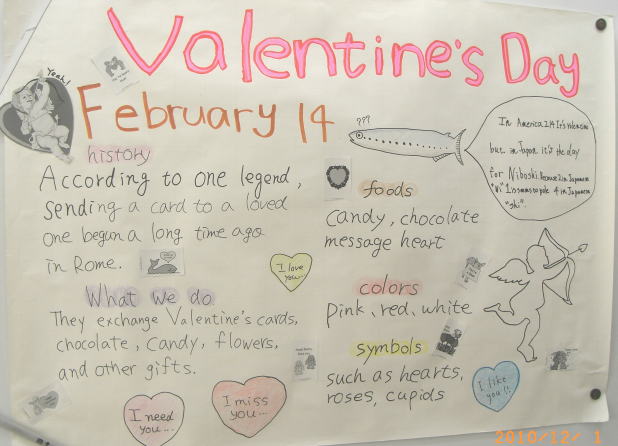 Valentine's Day
Yeah!
February 14
history
According to one legend,
sending a card to a loved
one begun a long time ago
in Rome.
I love
you...
What we do
They exchange Valentine's cards,
chocolate, candy, flowers,
and other gifts.
I need
you...
I miss
you...
???
In America 2.14 It's Valentine
but in Japan it's the day
for Niboshi. Because 2 in Japanese
"ni" 1 seems to pole 4 in Japanese
"shi".
foods
candy, chocolate
message heart
colors
pink, red, white
symbols
such as hearts,
roses, cupids
I like
you!!
2010/12/ 1